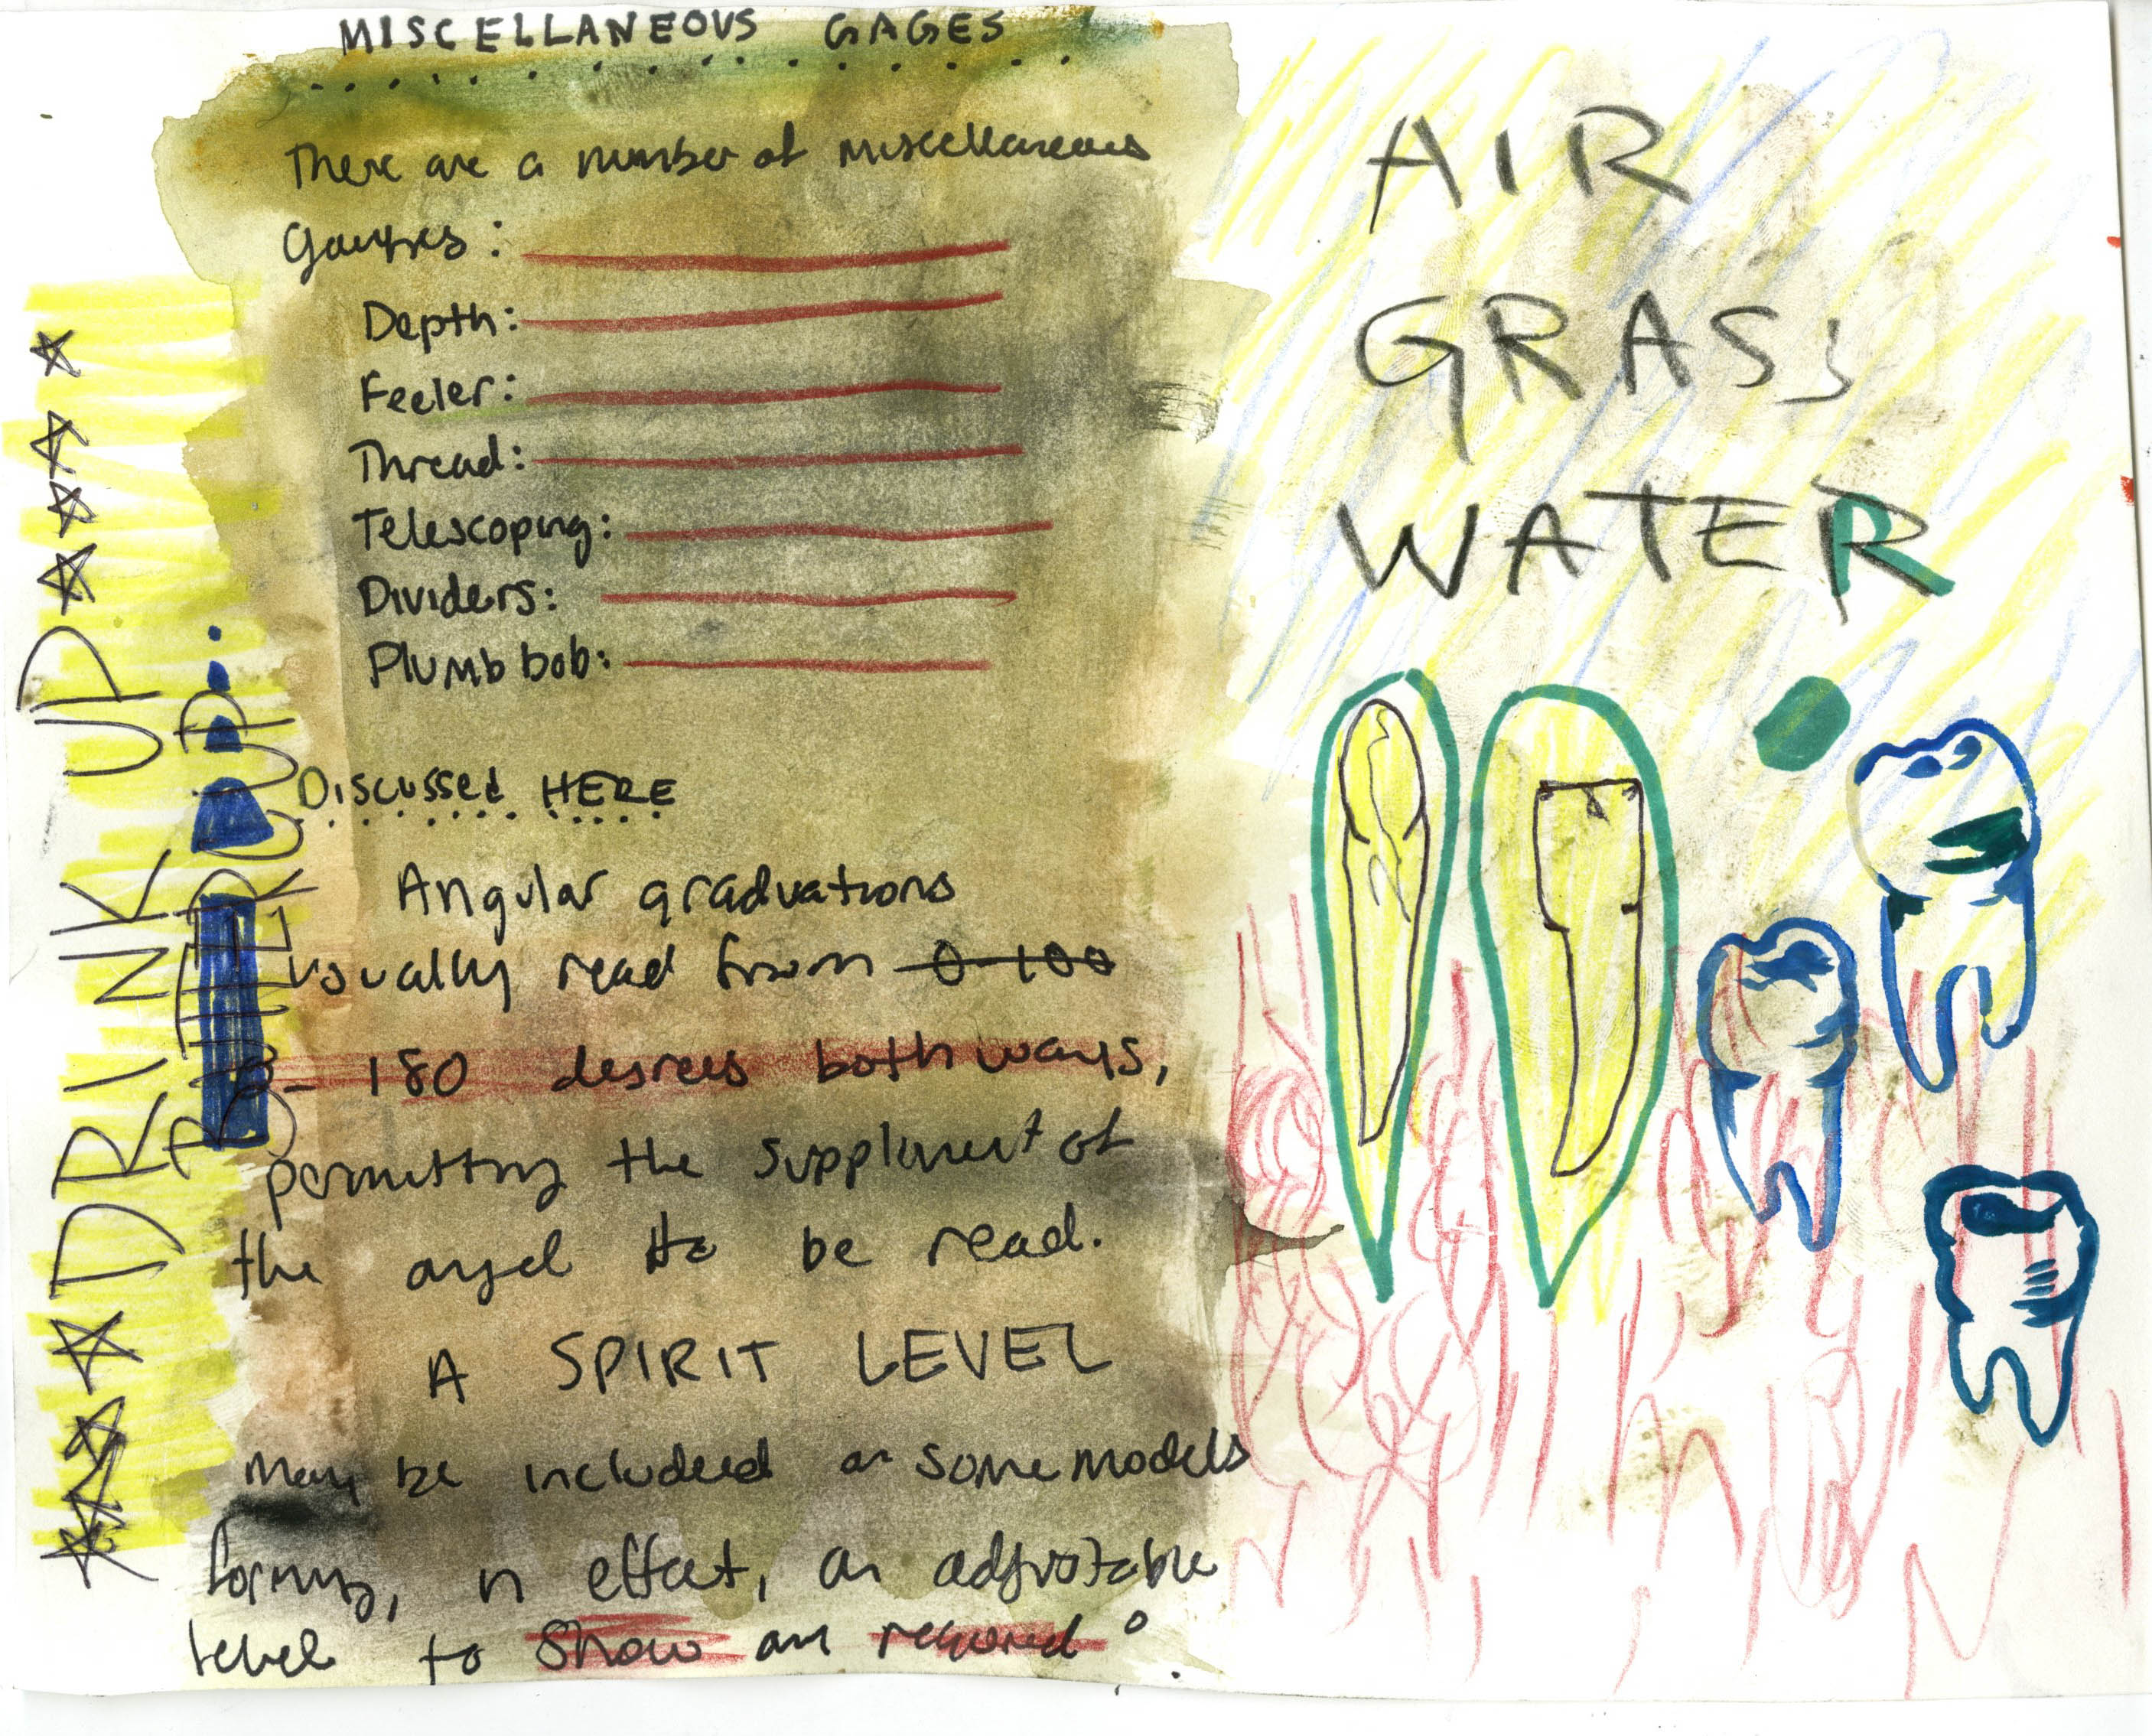 MISCELLANEOUS GAGES
There are a number of miscellaneous
Gauges:
Depth:
Feeler:
Thread:
Telescoping:
Dividers:
Plumb bob:
Discussed HERE
Angular graduations
usually read from 0-100
0- 180 degrees both ways,
permitting the supplement of
the angel to be read.
A SPIRIT LEVEL
may be included on some models
forming, in effect, an adjustable
level to show any required °.
DRINK UP
BUTTERCUP.
AIR
GRASS
WATER